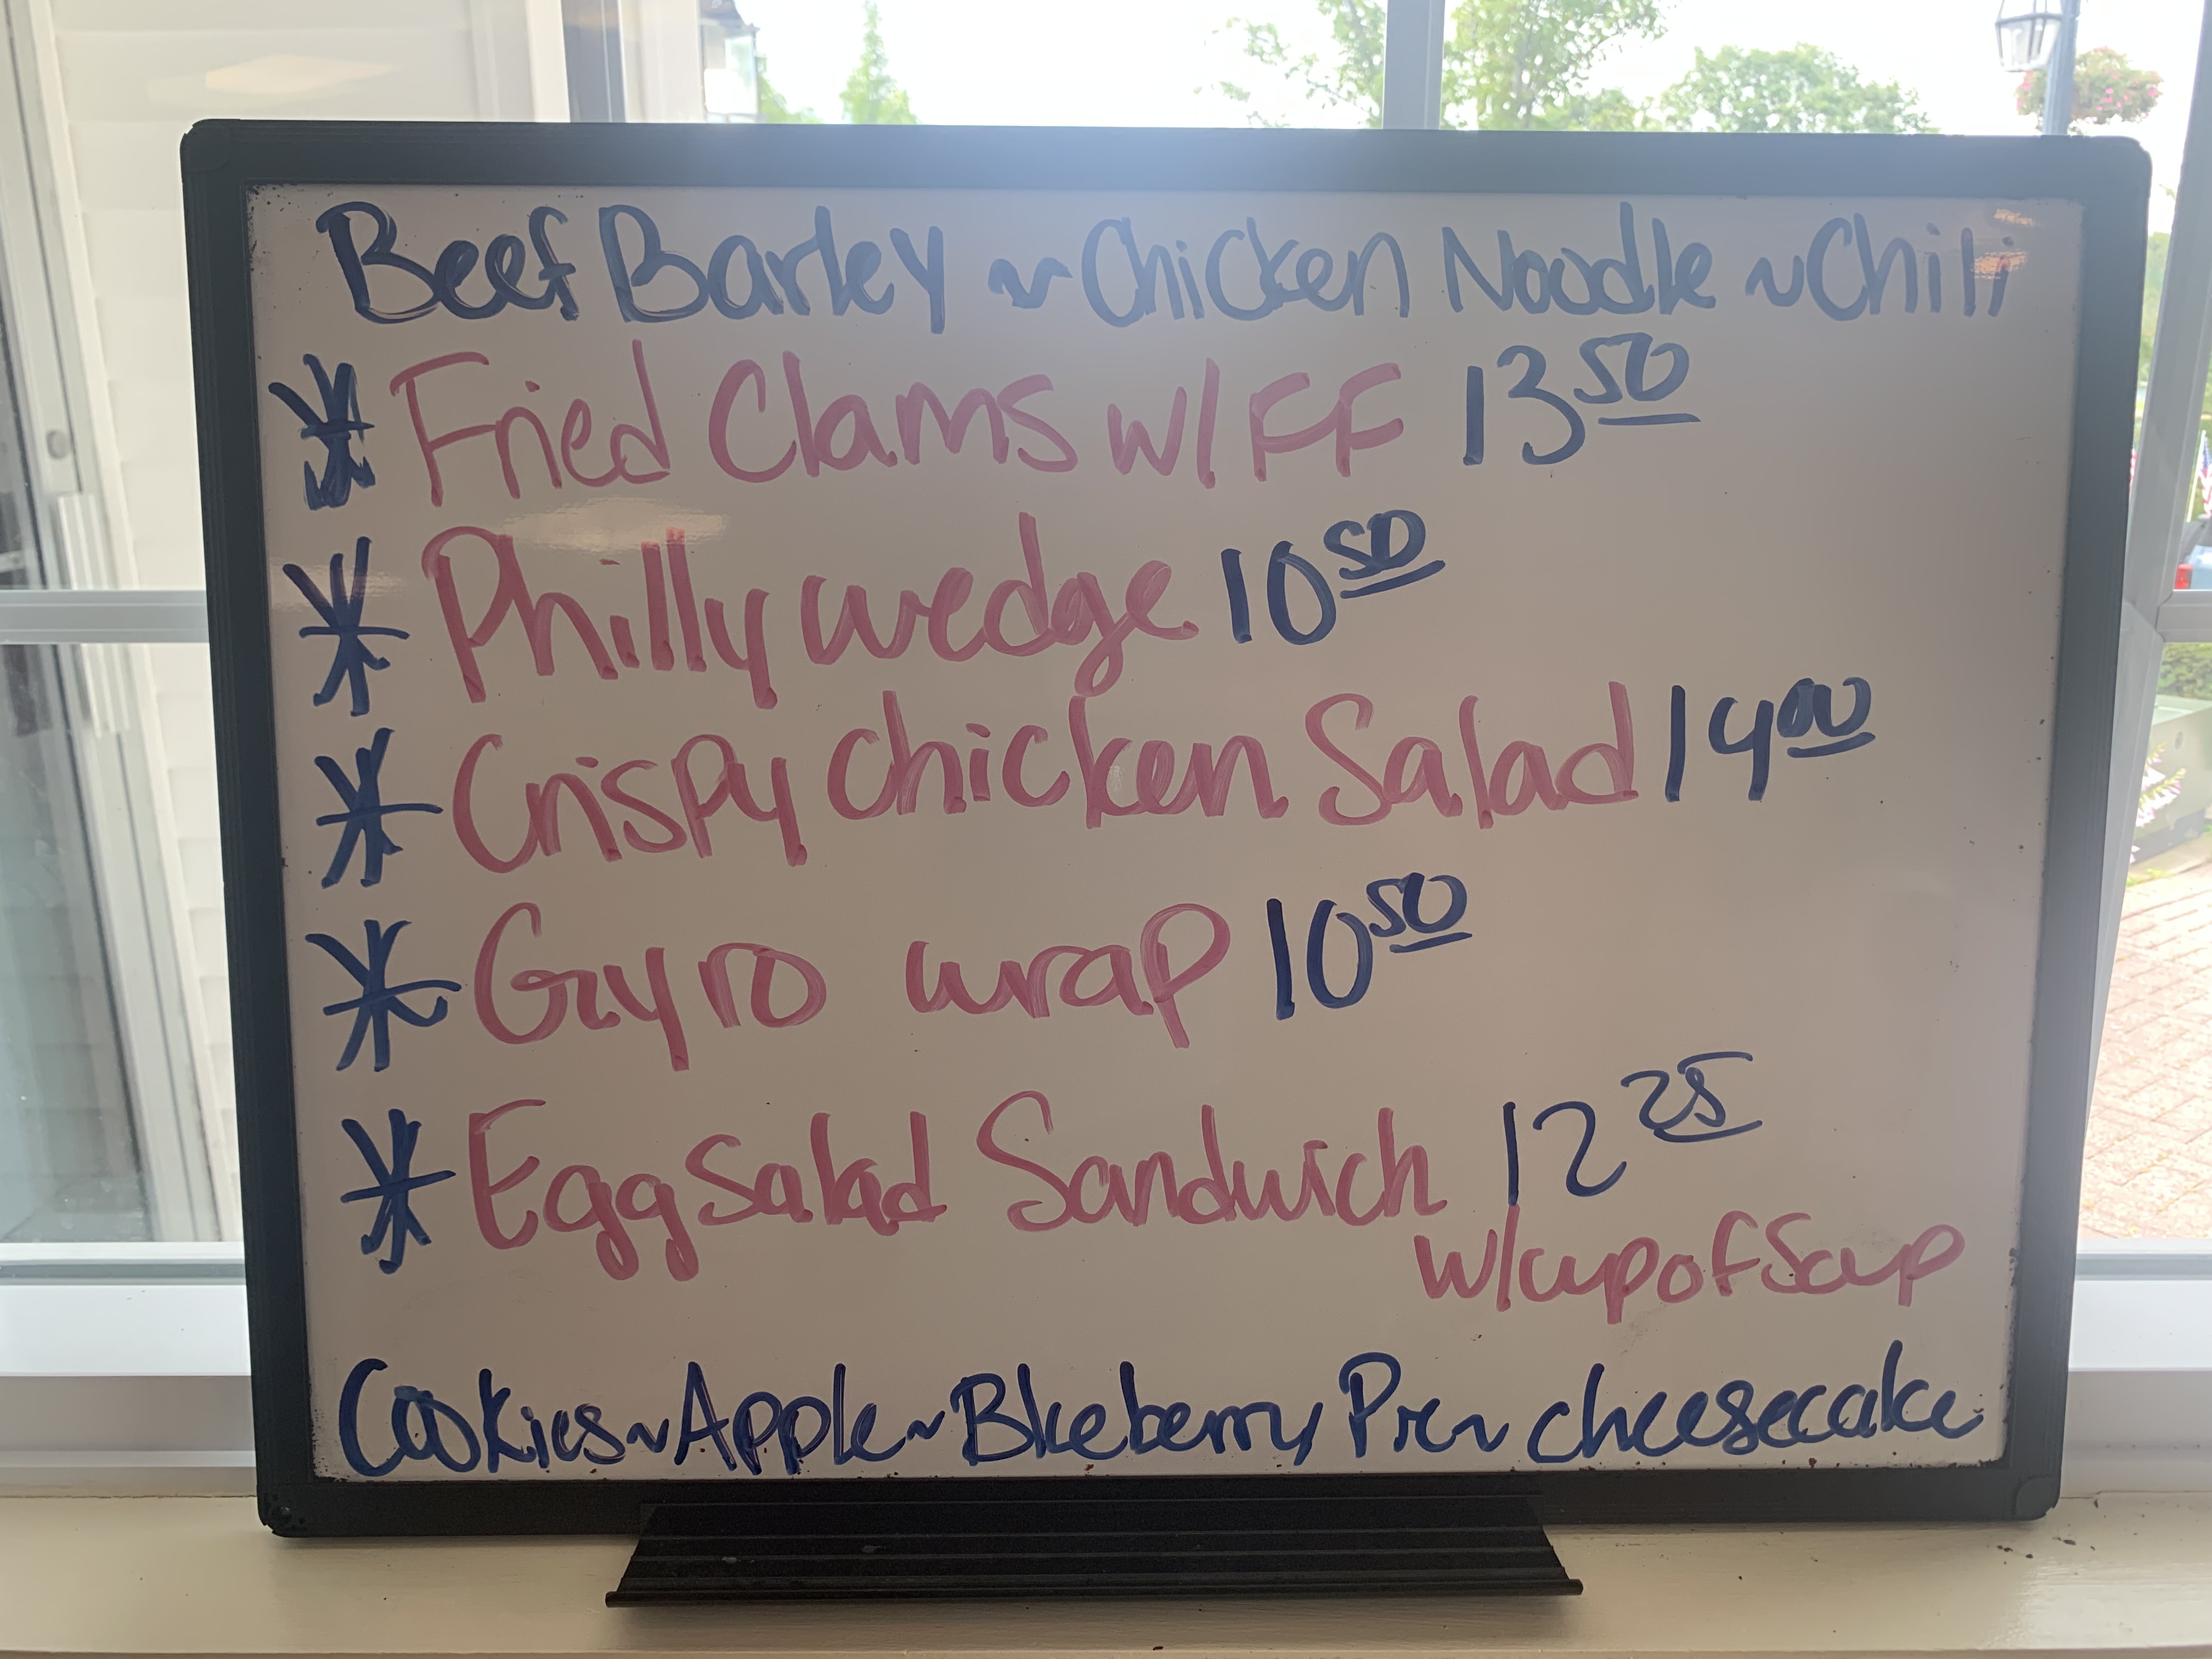 Beef Barley ~ Chicken Noodle ~ Chili
* Fried Clams w/FF 13 50
* Philly wedge 10 50
* Crispy chicken Salad 14 00
* Gyro wrap 10 50
* Egg Salad Sandwich 12 25
w/cup of Soup
Cookies ~ Apple ~ Blueberry Pie ~ cheesecake